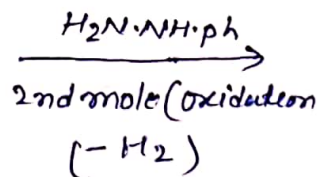 H2N·NH·ph
2nd mole (oxidation
(-H2)